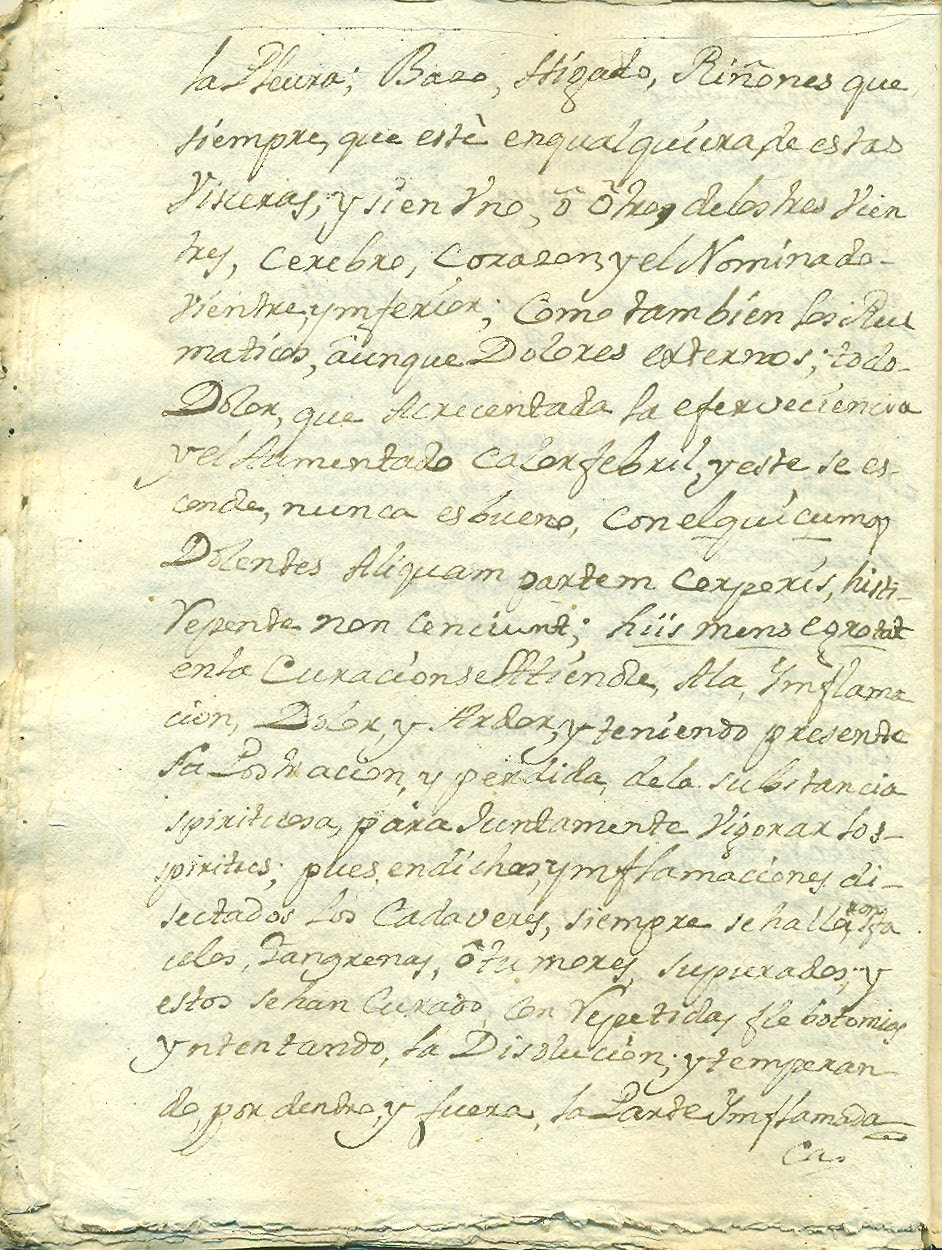 la Pleura; Bazo, Higado, Riñones que
siempre, que estè enqualquiura de estas
Visceras, y sien Vno, ô Ôtro, delos tres Vien
tres, Cerebro, Corazon, y el Nominado-
Vientre, ymferior; Como tambien los Reu
maticos, âunque Dolores externos; todo-
Dolor, que Acrecentada la eferveciencia
y el Aumentado Calor febril, y este se es-
conde, nunca es bueno, Con el quicumq
Dolentes Aliquam partem Corporis, histi-
Repente non Cenciunt; hiis mens egrotat
enla Curacion se Attiende, Ala, Ymflama
cion, Dolor, y Ardor, y teniendo presente
la Postracion, y perdida, dela substancia
spirituosa, para Juntamente Vigorar los-
spiritus; pues, endichas, ymflamaciones di-
sectados los Cadaveres, siempre se hallaron, sfa
celos, Gangrenas, ô tumores, supurados; y
estos sehan Curado, Con Repetidas flebotomias
yntentando, la Disolucion; y temperan-
do, por dentro, y fuera, la Parte Ymflamada
Ca-